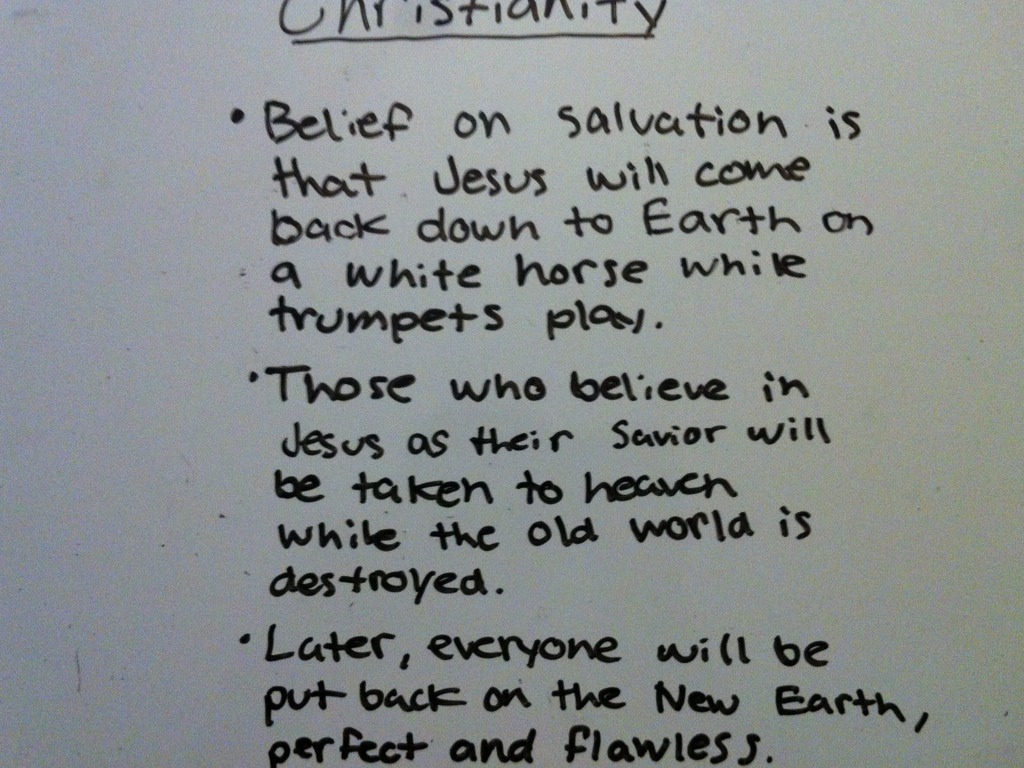 Christianity
• Belief on salvation is
that Jesus will come
back down to Earth on
a white horse while
trumpets play.
• Those who believe in
Jesus as their Savior will
be taken to heaven
while the old world is
destroyed.
• Later, everyone will be
put back on the New Earth,
perfect and flawless.